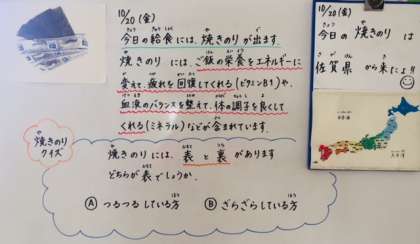 10/20(金)
今日の給食には、焼きのりが出ます。
焼きのりには、ご飯の栄養をエネルギーに
変えて、疲れを回復してくれる(ビタミンB1)や、
血液のバランスを整えて、体の調子を良くして
くれる(ミネラル)などが含まれています。
焼きのり
クイズ
焼きのりには、表と裏があります
どちらが表でしょうか。
Ⓐ つるつるしている方
Ⓑ ざらざらしている方
10/20(金)
今日の焼きのりは
佐賀県から来たよ!!